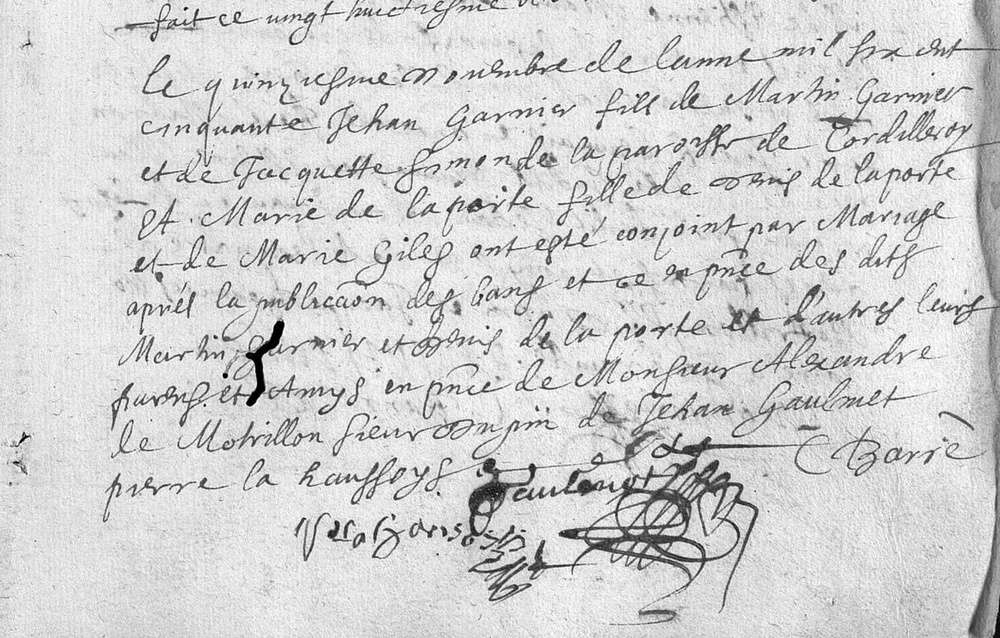 fait ce vingt huictiesme
le quinziesme novembre de lanne mil six cent
cinquante Jehan Garnier fils de Martin Garnier
et de Jacquette Simon de la paroisse de Cordilleroy
et Marie de laporte fille de denis de laporte
et de Marie Giles ont esté conjoint par Mariage
aprés la publicaon des bans et ce en pnce des dits
Martin Garnier et denis de la porte et d'autres leurs
parens et Amys en pnce de Monsieur Alexandre
le Motrillon sieur de Jehan Gaulmet
pierre la haussoys
Barré